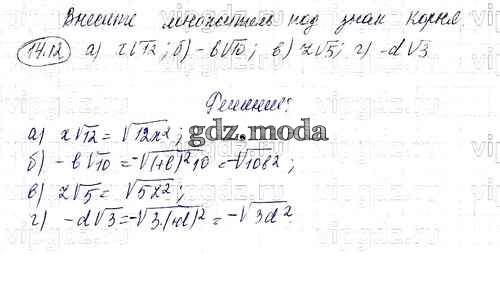 Внесите множитель под знак корня
14.12 а) x√12; б) -b√10; в) z√5; г) -d√3
Решение:
а) x√12 = √12x²;
б) -b√10 = -√(+b)²10 = -√10b²;
в) z√5 = √5z²;
г) -d√3 = -√3·(+d)² = -√3d²
gdz.moda